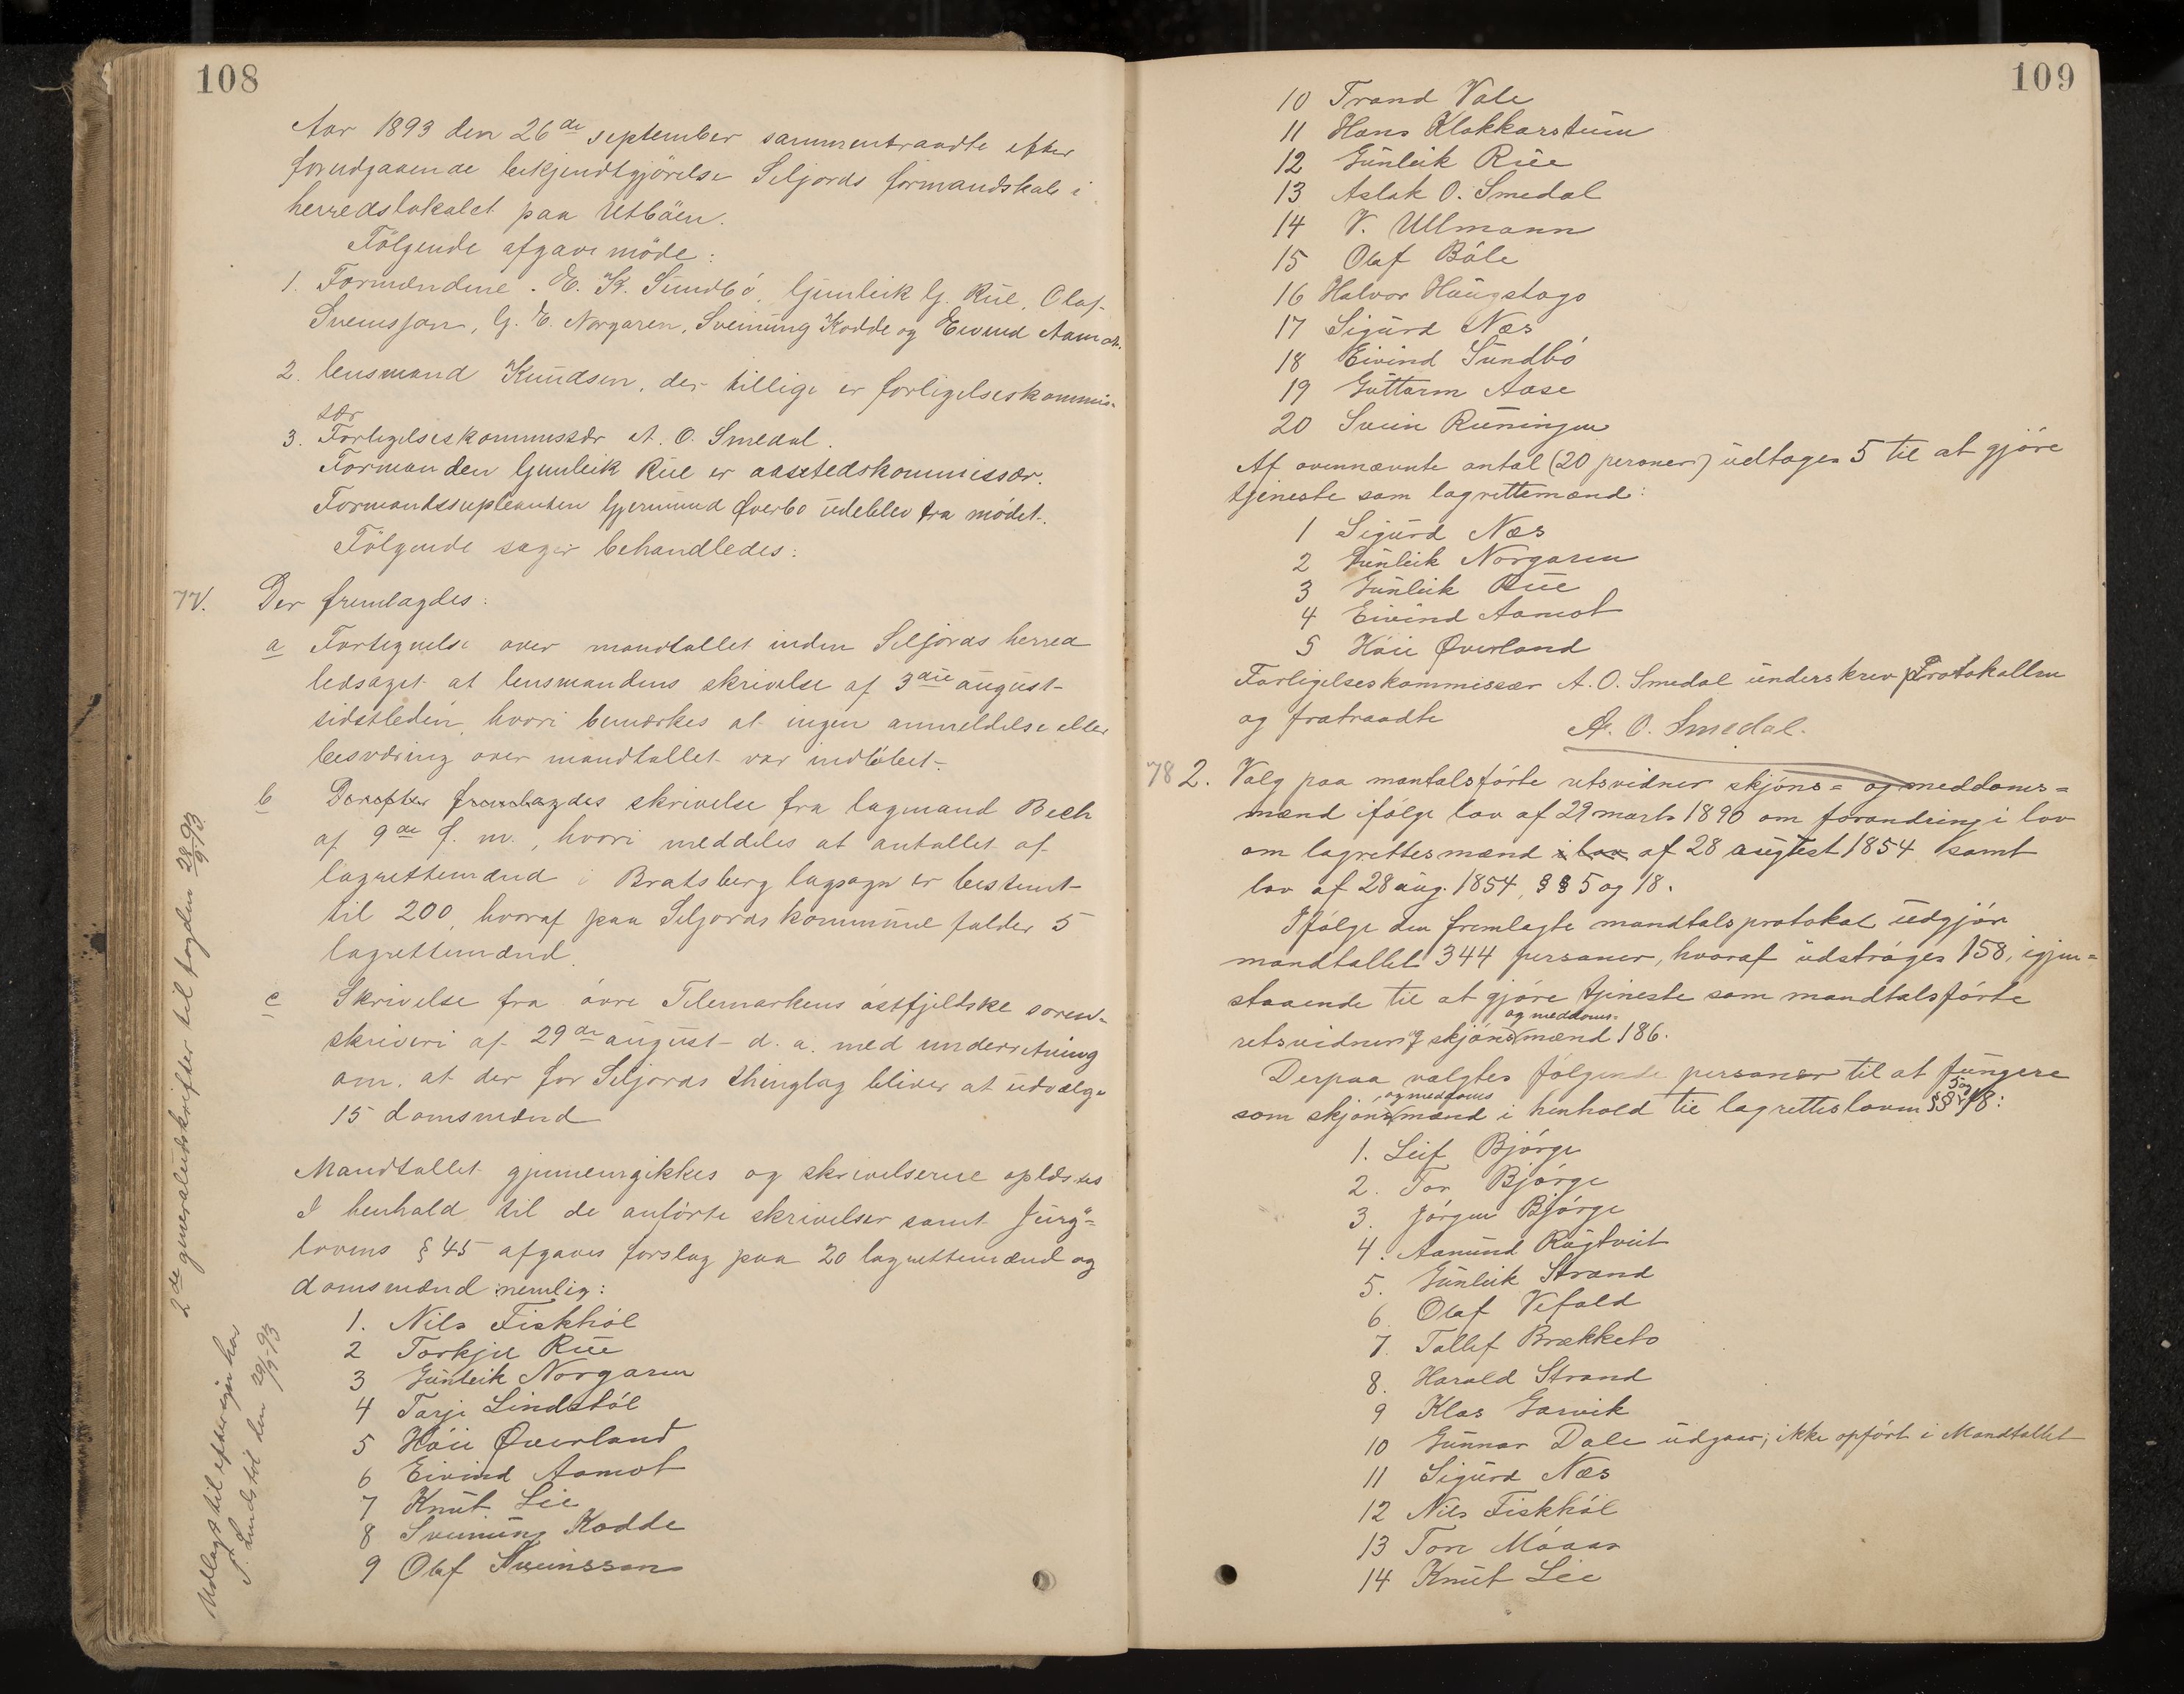 108
Aar 1893 den 26de september sammentraadte efter
forudgaaende bekjendtgjörelse Seljords formandskab i
herredslokalet paa Utböen.
Fölgende afgave möde:
1. Formændene. E. K. Sundbö, Gunleik G. Rue, Olaf
Sveinsson, G. E. Norgaren, Sveinung Kodde og Eivind Aamot.
2. lensmand Knudsen, der tillige er forligelseskommis-
sær
3. Forligelseskommissær A. O. Smedal.
Formanden Gunleik Rue er aastedskommissær.
Formandssupleanten Gjermund Øverbö udeblev fra mödet.
Fölgende sager behandledes:
77. Der fremlagdes:
a Fortegnelse over mandtallet inden Seljords herred
ledsaget at lensmandens skrivelse af 3die august
sidstleden, hvori bemærkes at ingen anmeldelse eller
besværing over mandtallet var indløbet.
b Derefter fremlagdes skrivelse fra lagmand Bech
af 9de f. m., hvori meddeles at antallet af
lagrettemænd i Bratsberg lagsogn er bestemt
til 200, hvoraf paa Seljords kommune falder 5
lagrettemænd.
c Skrivelse fra övre Telemarkens östfjeldske soren-
skriveri af 29de august d. a. med underretning
om, at der for Seljords thinglag bliver at udvælge
15 domsmænd
Mandtallet gjennemgikkes og skrivelserne oplæstes
I henhold til de anførte skrivelser samt Jury-
lovens § 45 afgaves forslag paa 20 lagrettemænd og
domsmænd nemlig:
1. Nils Fiskhól
2 Torkjel Rue
3 Gunleik Norgaren
4 Tarje Lindstól
5 Hóie Øverland
6 Eivind Aamot
7 Knut Lie
8 Sveinung Kodde
9 Olaf Sveinsson
2de generaludskrifter til fogden 28/9 93
Udlagt til eftersyn hos
T. Lindstól den 29/9-93
109
10 Trond Vale
11 Hans Klokkarstuen
12 Gunleik Rue
13 Aslak O. Smedal
14 V. Ullmann
15 Olaf Bóle
16 Halvor Haugstogo
17 Sigurd Næs
18 Eivind Sundbó
19 Guttorm Aase
20 Svein Runingen
Af ovennævnte antal (20 personer) udtoges 5 til at gjóre
tjeneste som lagrettemænd:
1 Sigurd Næs
2 Gunleik Norgaren
3 Gunleik Rue
4 Eivind Aamot
5 Hóie Øverland
Forligelseskommissær A. O. Smedal underskrev Protokollen
og fratraadte
A. O. Smedal.
78 2. Valg paa mantalsfórte retsvidner skjóns- og meddoms-
mænd ifólge lov af 29 marts 1890 om forandring i lov
om lagrettesmænd i lov af 28 august 1854 samt
lov af 28 aug. 1854, §§ 5 og 18.
Ifólge den fremlagte mandtalsprotokol udgjór
mandtallet 344 personer, hvoraf udstróges 158, igjen-
staaende til at gjóre tjeneste som mandtalsfórte
og meddoms-
retsvidner og skjónsmænd 186.
Derpaa valgtes fólgende personer til at fungere
og meddoms 5 og
som skjónsmænd i henhold til lagretteslovens §§ 18:
1. Leif Bjórge
2. Tor Bjórge
3. Jórgen Bjórge
4. Aamund Rugtveit
5. Gunleik Strand
6. Olaf Vefald
7. Tallef Brækkebo
8. Harald Strand
9 Klas Garvik
10 Gunnar Dale udgaar; ikke opfórt i Mandtallet
11 Sigurd Næs
12 Nils Fiskhól
13 Tore Móaas
14 Knut Lie